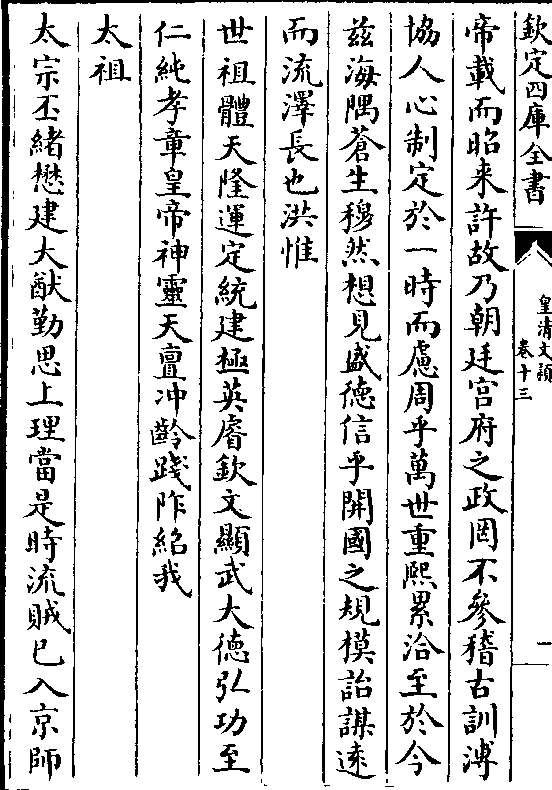 欽定四庫全書
皇清文穎
卷十三
一
帝載而昭来許故乃朝廷宫府之政罔不參稽古訓溥
協人心制定於一時而慮周乎萬世重熙累洽至於今
兹海隅蒼生穆然想見盛徳信乎開國之規模詒謀逺
而流澤長也洪惟
世祖體天隆運定統建極英睿欽文顯武大徳弘功至
仁純孝章皇帝神靈天亶冲齡踐阼紹我
太祖
太宗丕緒懋建大猷勤思上理當是時流賊已入京師